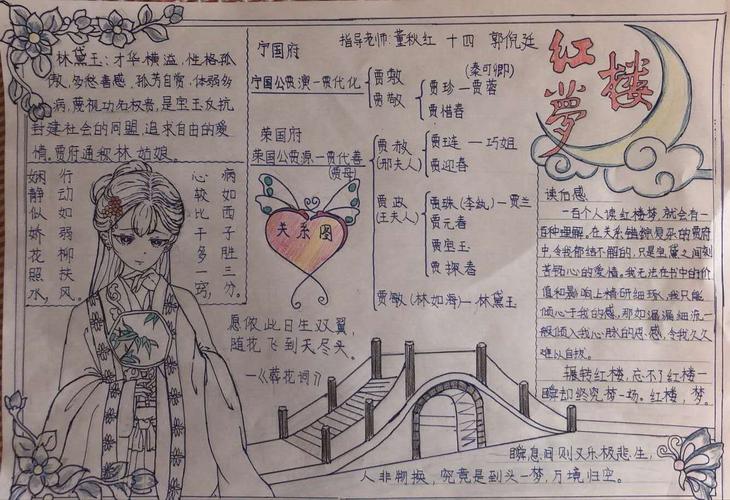 林黛玉:才华横溢,性格孤
傲,多愁善感,孤芳自赏,体弱多
病,蔑视功名权贵,是宝玉反抗
封建社会的同盟,追求自由的爱
情。贾府通称林姑娘。
娴静似娇花照水,
行动如弱柳扶风。
心较比干多一窍,
病如西子胜三分。
宁国府
宁国公贾演—贾代化
贾敷
贾敬
(秦可卿)
贾珍—贾蓉
贾惜春
荣国府
荣国公贾源—贾代善
(贾母)
贾赦
(邢夫人)
贾琏—巧姐
贾迎春
贾政
(王夫人)
贾珠(李纨)—贾兰
贾元春
贾宝玉
贾探春
贾敏(林如海)—林黛玉
关系图
愿侬此日生双翼,
随花飞到天尽头。
—《葬花词》
指导老师:董秋红 十四 郭倪廷
红楼梦
读后感
一百个人读红楼梦,就会有一
百种理解,在关系错综复杂的贾府
中,令我郁结不解的,只是宝黛之间刻
苦铭心的爱情,我无法在书中的价
值和影响上精研细琢,我只能
倾心于我的感,那如潺潺细流一
般倾入我心脉的思感,令我久久
难以自拔。
辗转红楼,忘不了红楼一
瞬却终究梦一场。红楼,梦。
瞬息间则又乐极悲生,
人非物换,究竟是到头一梦,万境归空。